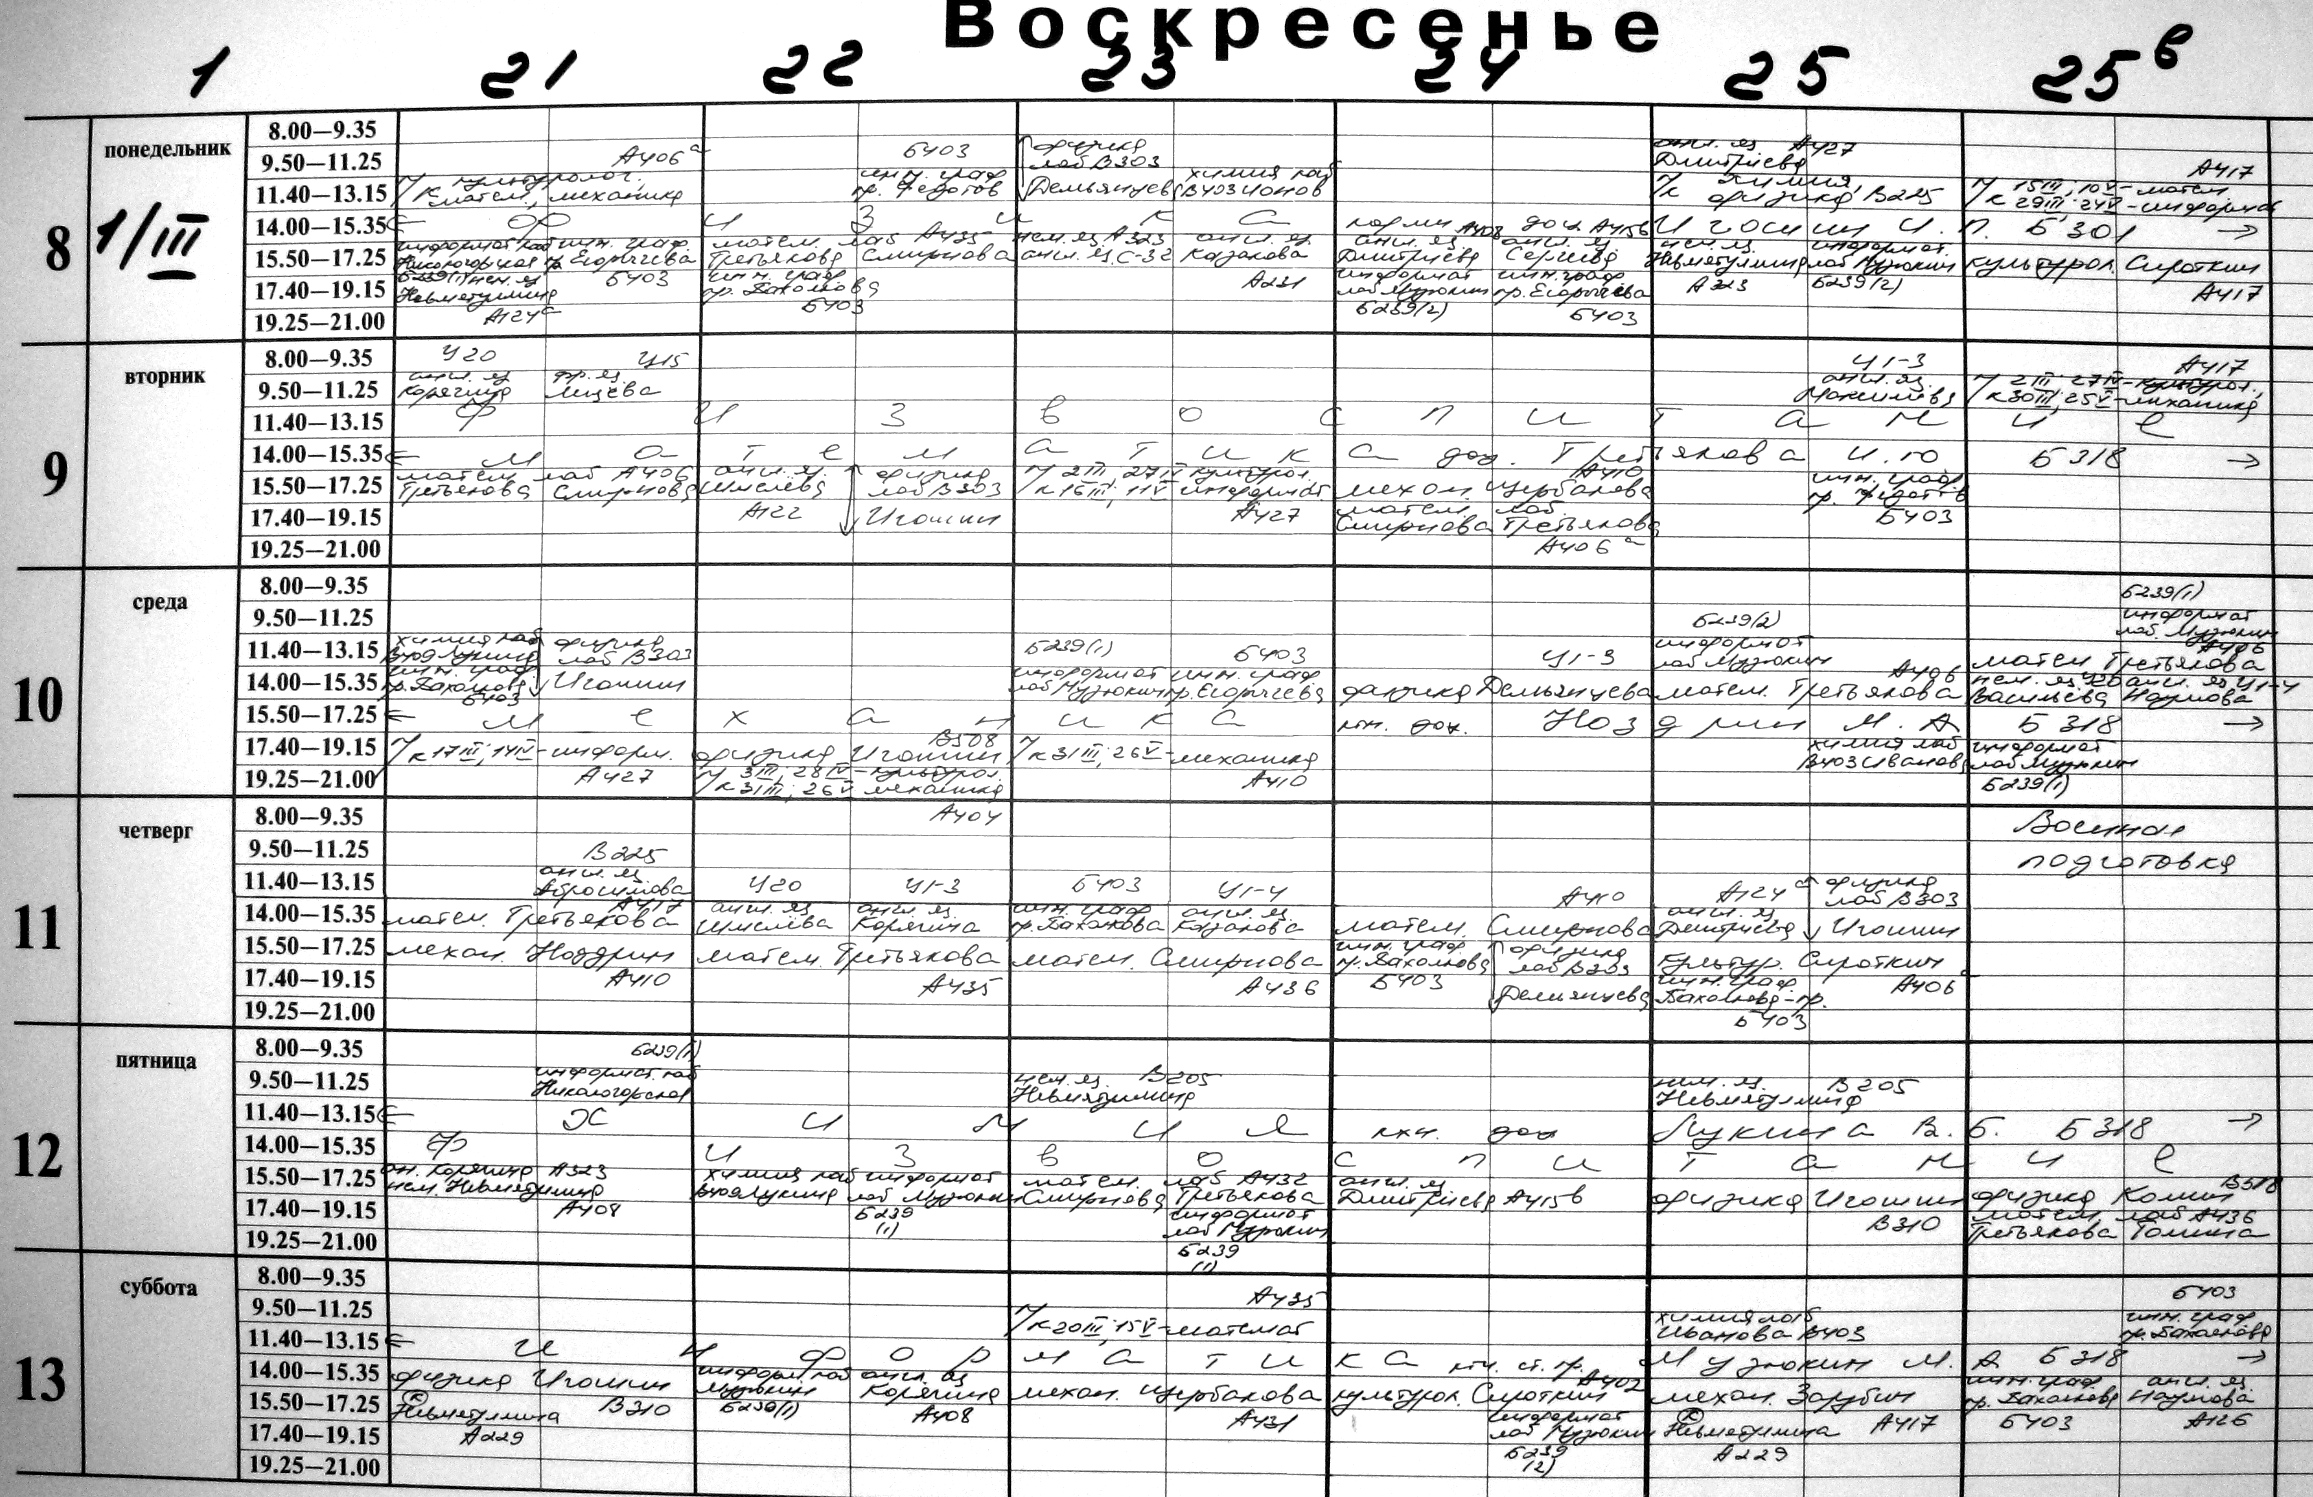 Воскресенье
1 21 22 23 24 25 25в
8 понедельник 1/III
8.00—9.35
9.50—11.25 А406а Б403 физика лаб В303 англ. яз. А427 Дмитриева А417
11.40—13.15 культуролог. матем., механика инж. граф пр. Федотов Демьянцева химия лаб химия, физика В225 15III; 10V - матем. 29III; 24V - информат
14.00—15.35 Ф И З И К А доц. Игошин И. П. Б 301
15.50—17.25 инж. граф. матем. лаб А435 Третьякова Смирнова нем. яз. А323 англ. яз. С-32 англ. яз. Казакова англ. яз. Дмитриева англ. яз. Сергиева нем. яз. информат. лаб Музюкин культурол. Сироткин
17.40—19.15 Б403 инж. граф. А231 информат лаб Музюкин инж. граф А323 Б239(2) А417
19.25—21.00 А124а Б403 Б239(2) Б403
9 вторник
8.00—9.35 У20 У15 У1-3 А417
9.50—11.25 англ. яз Корягина фр. яз. англ. яз. 2III; 27IV - культурол. 30III; 25V - механика
11.40—13.15 Ф И З В О С П И Т А Н И Е
14.00—15.35 М А Т Е М А Т И К А доц. Третьякова И. Ю Б 318
15.50—17.25 матем. лаб А406 Третьякова Смирнова англ. яз. Шмелёва физика лаб В303 2III, 27IV культурол. 16III, 11V информат А410 механ. Щербакова инж. граф. пр. Федотов
17.40—19.15 А122 Игошин А427 матем. лаб. Смирнова Третьякова Б403
19.25—21.00 А406а
10 среда
8.00—9.35 Б239(1)
9.50—11.25 Б239(2) информат лаб. Музюкин
11.40—13.15 химия лаб физика лаб В303 Б239(1) Б403 У1-3 информат лаб Музюкин А406 матем. Третьякова
14.00—15.35 инж. граф. Б403 Игошин информат лаб Музюкин инж. граф. физика Демьянцева матем. Третьякова А406 нем. яз У20 англ. яз У1-4 Васильева Наумова
15.50—17.25 М Е Х А Н И К А доц. Ноздрин М. А Б 318
17.40—19.15 17III; 14IV - информ. физика Игошин В508 31III; 26V - механика химия лаб информат лаб Музюкин
19.25—21.00 А427 3III; 28IV - культурол. 31III; 26V механика А410 Б239(1)
11 четверг
8.00—9.35 А404 Военная
9.50—11.25 В225 подготовка
11.40—13.15 англ. яз Абросимова У20 У1-3 Б403 У1-4 А410 А124а физика лаб В303
14.00—15.35 матем. Третьякова А417 англ. яз. Шмелёва англ. яз. Корягина инж. граф англ. яз. Казакова матем. Смирнова англ. яз Дмитриева Игошин
15.50—17.25 механ. Ноздрин матем. Третьякова матем. Смирнова инж. граф физика лаб В303 культур. Сироткин
17.40—19.15 А410 А435 А436 Б403 Демьянцева инж. граф. А406
19.25—21.00 Б403
12 пятница
8.00—9.35 Б239(1)
9.50—11.25 информат. лаб Никологорская нем. яз. В205 нем. яз. В205
11.40—13.15 Х И М И Я доц Лукина В. Б. Б 318
14.00—15.35 Ф И З В О С П И Т А Н И Е
15.50—17.25 А323 химия лаб информат матем. лаб А432 Смирнова Третьякова англ. яз Дмитриева А415в физика Игошин физика Комин
17.40—19.15 А408 Б239 (1) информат лаб Музюкин В310 матем. лаб А436
19.25—21.00 Б239 (1) Третьякова Томина
13 суббота
8.00—9.35 Б403
9.50—11.25 А435 химия лаб Иванова В403 инж. граф
11.40—13.15 20III; 15V - математ
14.00—15.35 И Н Ф О Р М А Т И К А ст. пр. Музюкин М. А Б 318
15.50—17.25 физика Игошин информ. лаб Музюкин англ. яз Корягина механ. Щербакова культурол. Сироткин А402 механ. Зарубин инж. граф. англ. яз. Наумова
17.40—19.15 В310 Б239(1) А408 А431 информат лаб Музюкин А417 Б403 А126
19.25—21.00 А229 Б239 (2) А229